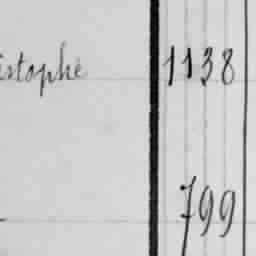 istophe 1138
799